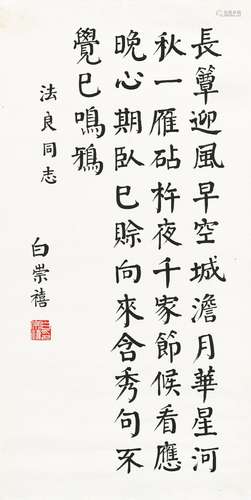 長簟迎風早空城澹月華星河
秋一雁砧杵夜千家節候看應
晚心期臥已賒向來含秀句不
覺已鳴鴉
法良同志
白崇禧